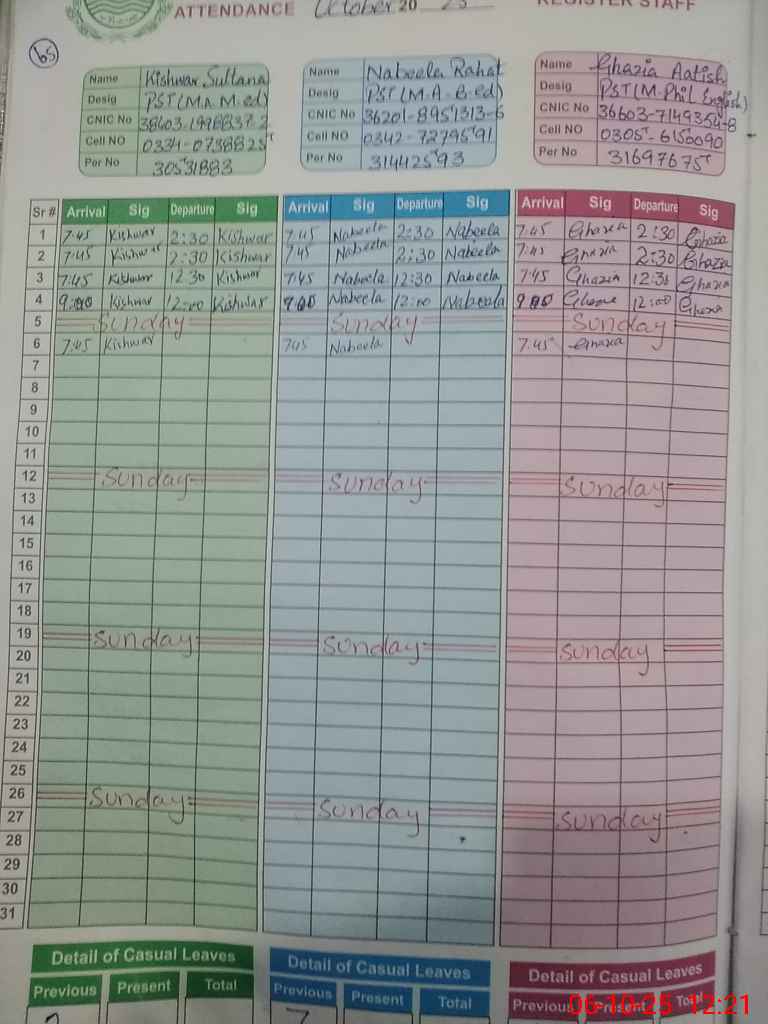 ATTENDANCE October 2025 REGISTER STAFF
65
Name Kishwar Sultana
Desig PST (M.A M.ed)
CNIC No
Cell NO 0334-0738825
Per No 30531883
Name Nabeela Rahat
Desig PST (M.A. B.ed)
CNIC No 36201-8951313-6
Cell NO 0342-7279591
Per No 31442593
Name Ghazia Aatish
Desig PST (M.Phil English)
CNIC No 36603-7149354-8
Cell NO 0305-6150090
Per No 31697675
Sr # Arrival Sig Departure Sig Arrival Sig Departure Sig Arrival Sig Departure Sig
1 7:45 Kishwar 2:30 Kishwar 7:45 Nabeela 2:30 Nabeela 7:45 Ghazia 2:30 Ghazia
2 7:45 Kishwar 2:30 Kishwar 7:45 Nabeela 2:30 Nabeela 7:45 Ghazia 2:30 Ghazia
3 7:45 Kishwar 12:30 Kishwar 7:45 Nabeela 12:30 Nabeela 7:45 Ghazia 12:30 Ghazia
4 9:00 Kishwar 12:00 Kishwar 9:00 Nabeela 12:00 Nabeela 9:00 Ghazia 12:00 Ghazia
5 Sunday Sunday Sunday
6 7:45 Kishwar 7:45 Nabeela 7:45 Ghazia
7
8
9
10
11
12 Sunday Sunday Sunday
13
14
15
16
17
18
19 Sunday Sunday Sunday
20
21
22
23
24
25
26 Sunday Sunday Sunday
27
28
29
30
31
Detail of Casual Leaves Detail of Casual Leaves Detail of Casual Leaves
Previous Present Total Previous Present Total Previous Present Total
06-10-25 12:21